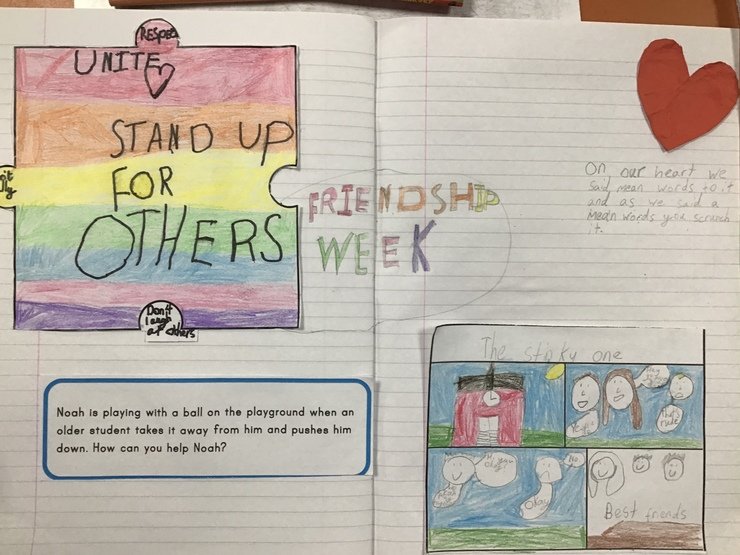 Respec
UNITE
STAND UP
FOR
OTHERS
Don't
laugh
at others
FRIENDSHIP
WEEK
Noah is playing with a ball on the playground when an
older student takes it away from him and pushes him
down. How can you help Noah?
On our heart we
said mean words to it
and as we said a
mean words you scrunch
it.
The stinky one
that's
rude
you
okay?
No
Okay
Best friends